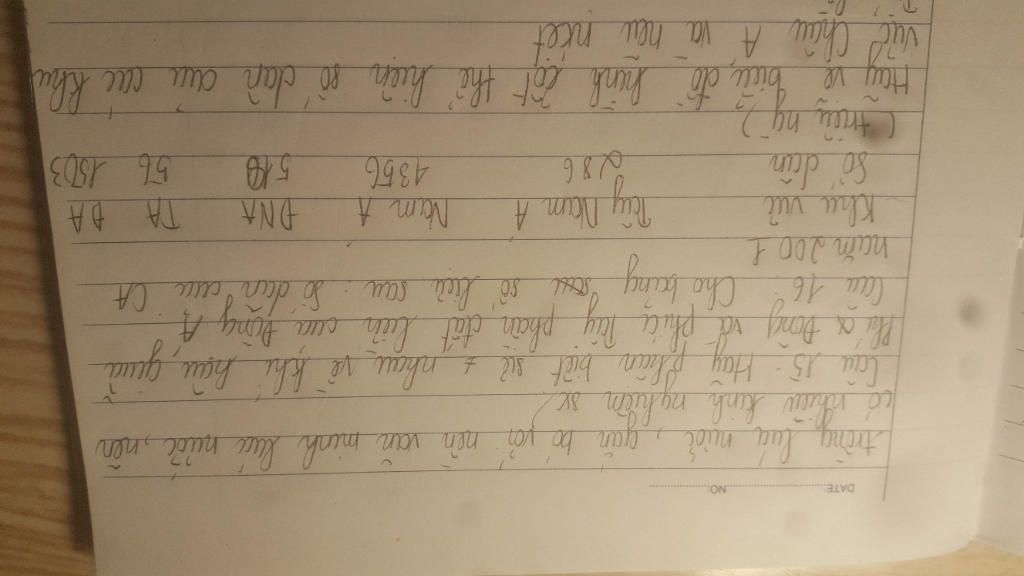 DATE NO
trồng lúa nước, gắn bó với nền văn minh lúa nước, nên
có nhiều kinh nghiệm sx
Câu 15: Hãy phân biệt sự ≠ nhau về khí hậu giữa
phía Đông và phía Tây phần đất liền của Đông Á
Câu 16: Cho bảng số liệu sau: Số dân của CA
năm 2001
Khu vực Tây Nam Á Nam Á ĐNA TA ĐA
Số dân 286 1356 519 56 1503
(triệu ng)
Hãy vẽ biểu đồ hình cột thể hiện số dân của các khu
vực Châu Á và nêu nxét